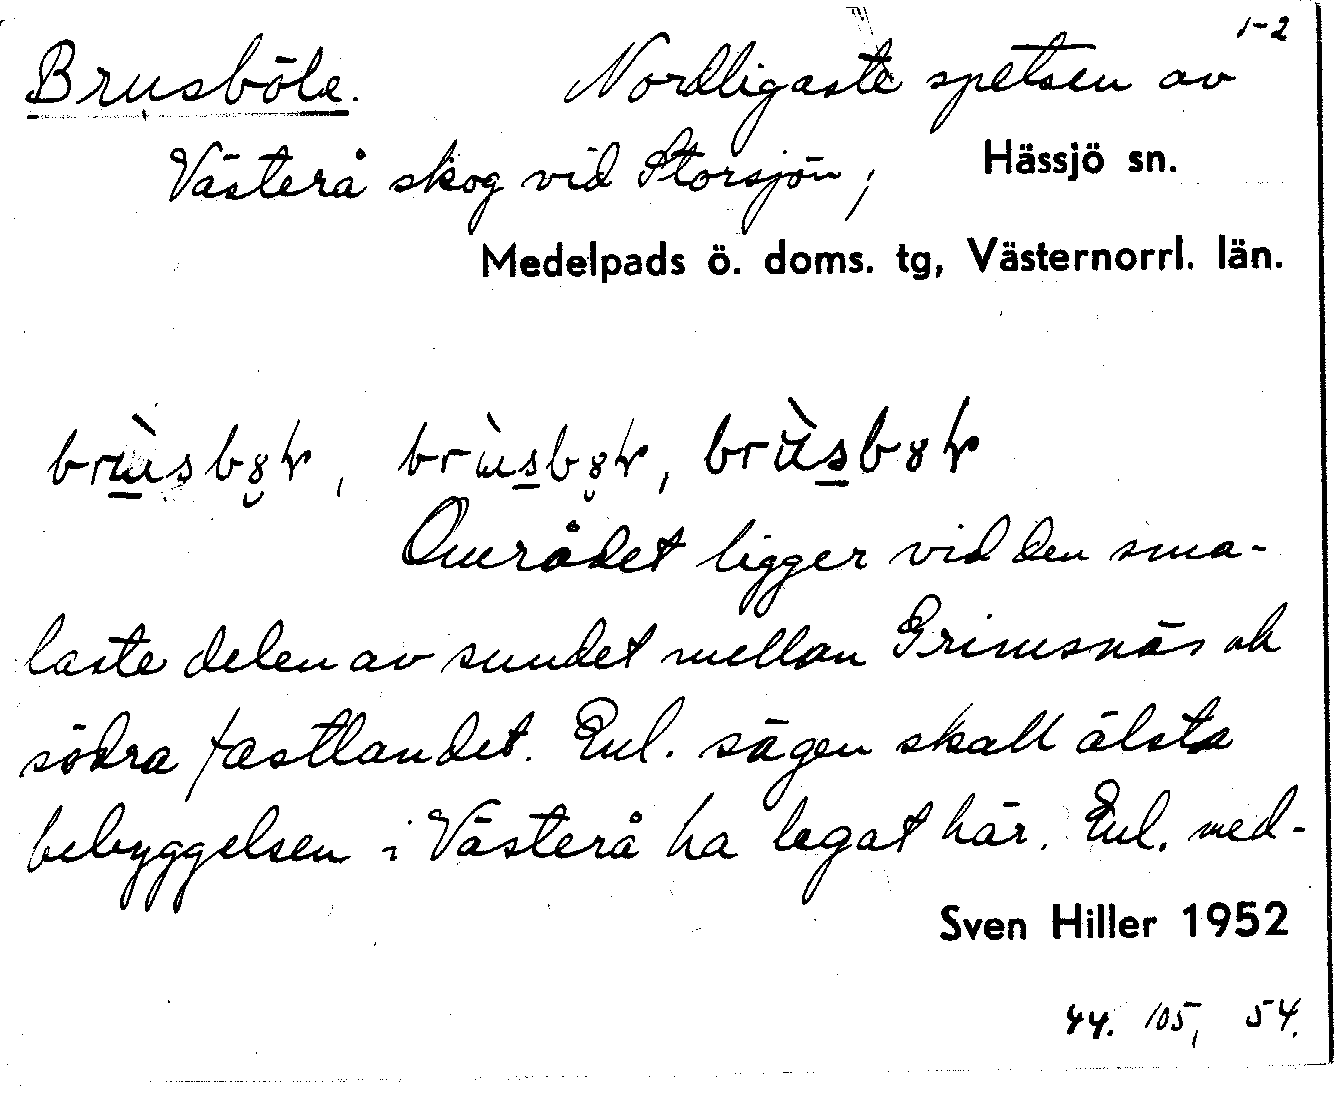 1-2
Brusböle. Nordligaste spetsen av
Västerå skog vid Storsjön, Hässjö sn.
Medelpads ö. doms. tg, Västernorrl. län.
Området ligger vid den sma-
laste delen av sundet mellan Grimsnäs och
södra fastlandet. Enl. sägen skall älsta
bebyggelsen i Västerå ha legat här. Enl. med-
Sven Hiller 1952
44. 105, 54.